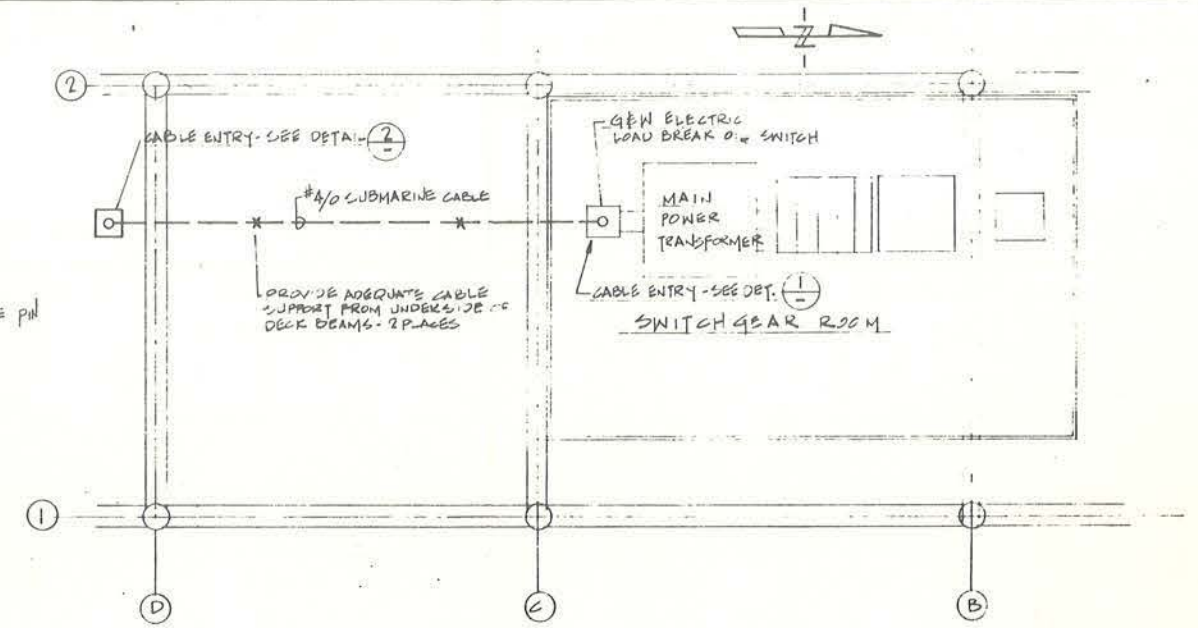 N
2
CABLE ENTRY - SEE DETAIL 2
-
G&W ELECTRIC
LOAD BREAK OIL SWITCH
#4/0 SUBMARINE CABLE
MAIN
POWER
TRANSFORMER
PROVIDE ADEQUATE CABLE
SUPPORT FROM UNDERSIDE OF
DECK BEAMS - 2 PLACES
CABLE ENTRY - SEE DET. 1
-
SWITCHGEAR ROOM
PIN
1
D
C
B